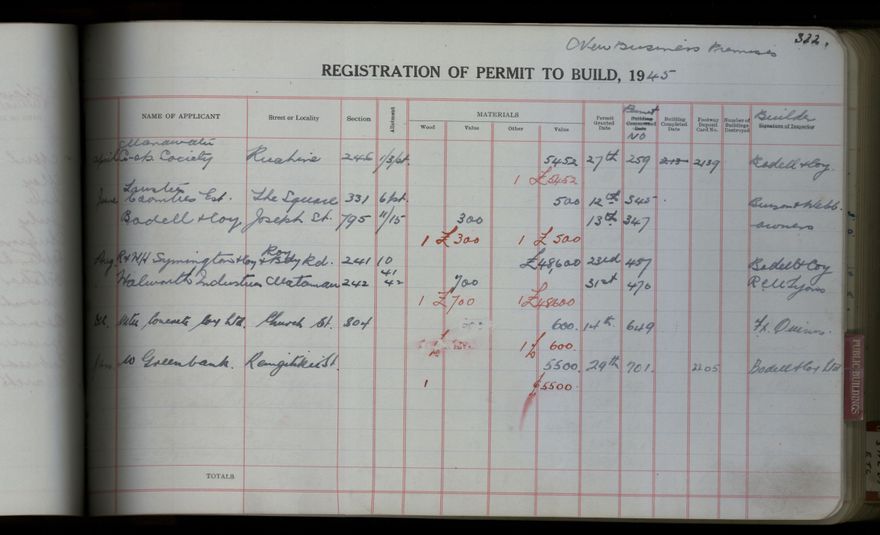 New Business Premises 322.
REGISTRATION OF PERMIT TO BUILD, 1945
NAME OF APPLICANT Street or Locality Section Allotment MATERIALS Wood Value Other Value Permit Granted Date Permit No Building Completed Date Footway Deposit Card No. Number of Buildings Destroyed Builder Signature of Inspector
Manawatu
April Co-op Society Ruahine 246 1/3/pt. 5452 27th 259 2139 Bodell & Coy.
1 £5452
June Counties Est. The Square 331 6 pt. 500 12th 345
Bodell & Coy Joseph St. 795 11/15 300 13th 347 owners
1 £300 1 £500
Aug R & WH Symington & Coy Rd. 241 10 £48,600 23rd 457 Bodell & Coy
41
Halworth Industries Matamau 242 42 700 31st 470 Lyons
1 £700 1 £48600
Concrete Coy Ltd. Church St. 304 600. 14th 649
1 £ 600.
Jan W Greenbank. Rangitikei St. 5500 29th 701. 2205 Bodell & Coy Ltd
1 £5500
TOTALS
PUBLIC BUILDINGS